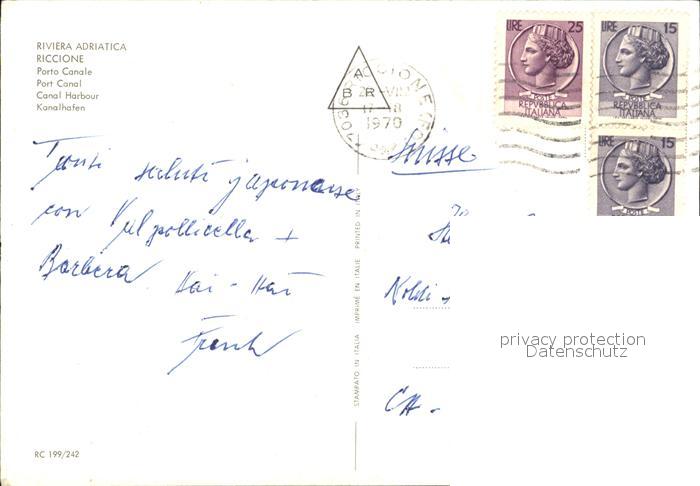 RIVIERA ADRIATICA
RICCIONE
Porto Canale
Port Canal
Canal Harbour
Kanalhafen
Tanti saluti japonaise
con Valpollicella +
Barbera. Hai - Hai
RC 199/242
STAMPATO IN ITALIA IMPRIMÉ EN ITALIE PRINTED IN
A
B R
17-18
1970
LIRE 25
POSTE
REPVBBLICA
ITALIANA
LIRE 15
POSTE
REPVBBLICA
ITALIANA
LIRE 15
POSTE
Suisse
CH -
privacy protection
Datenschutz